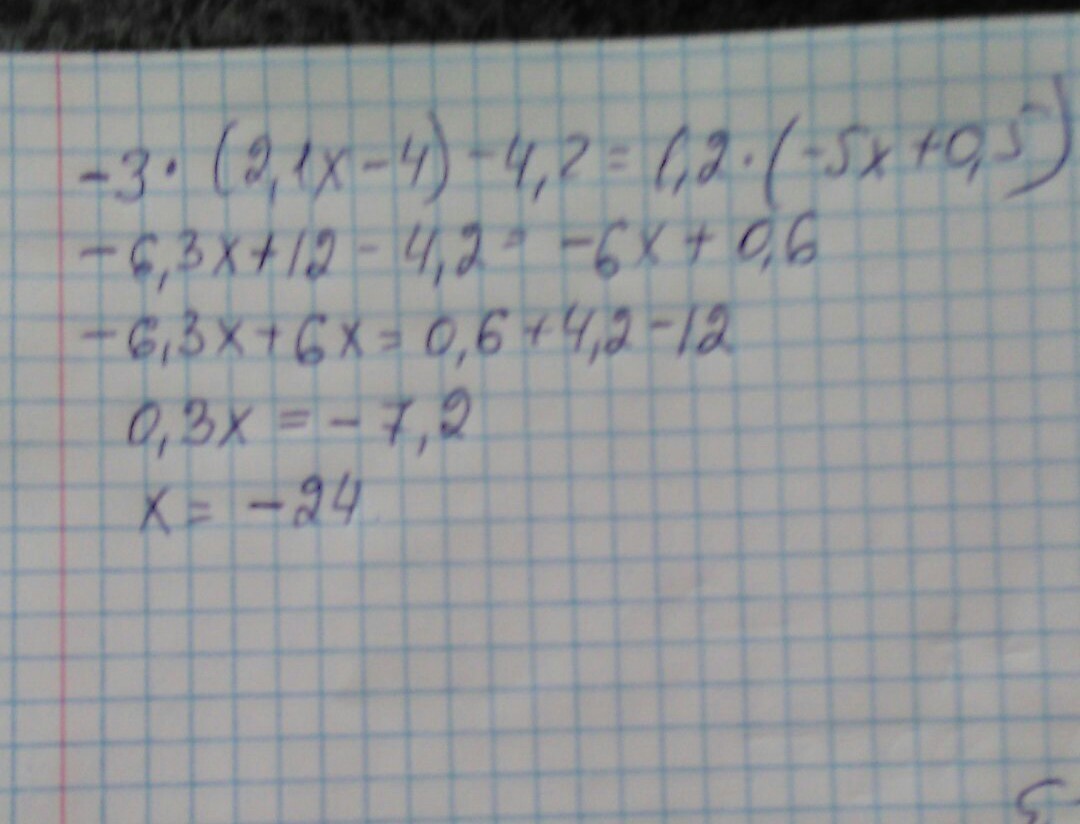 -3·(2,1x-4)-4,2=1,2·(-5x+0,5)
-6,3x+12-4,2=-6x+0,6
-6,3x+6x=0,6+4,2-12
0,3x=-7,2
x=-24